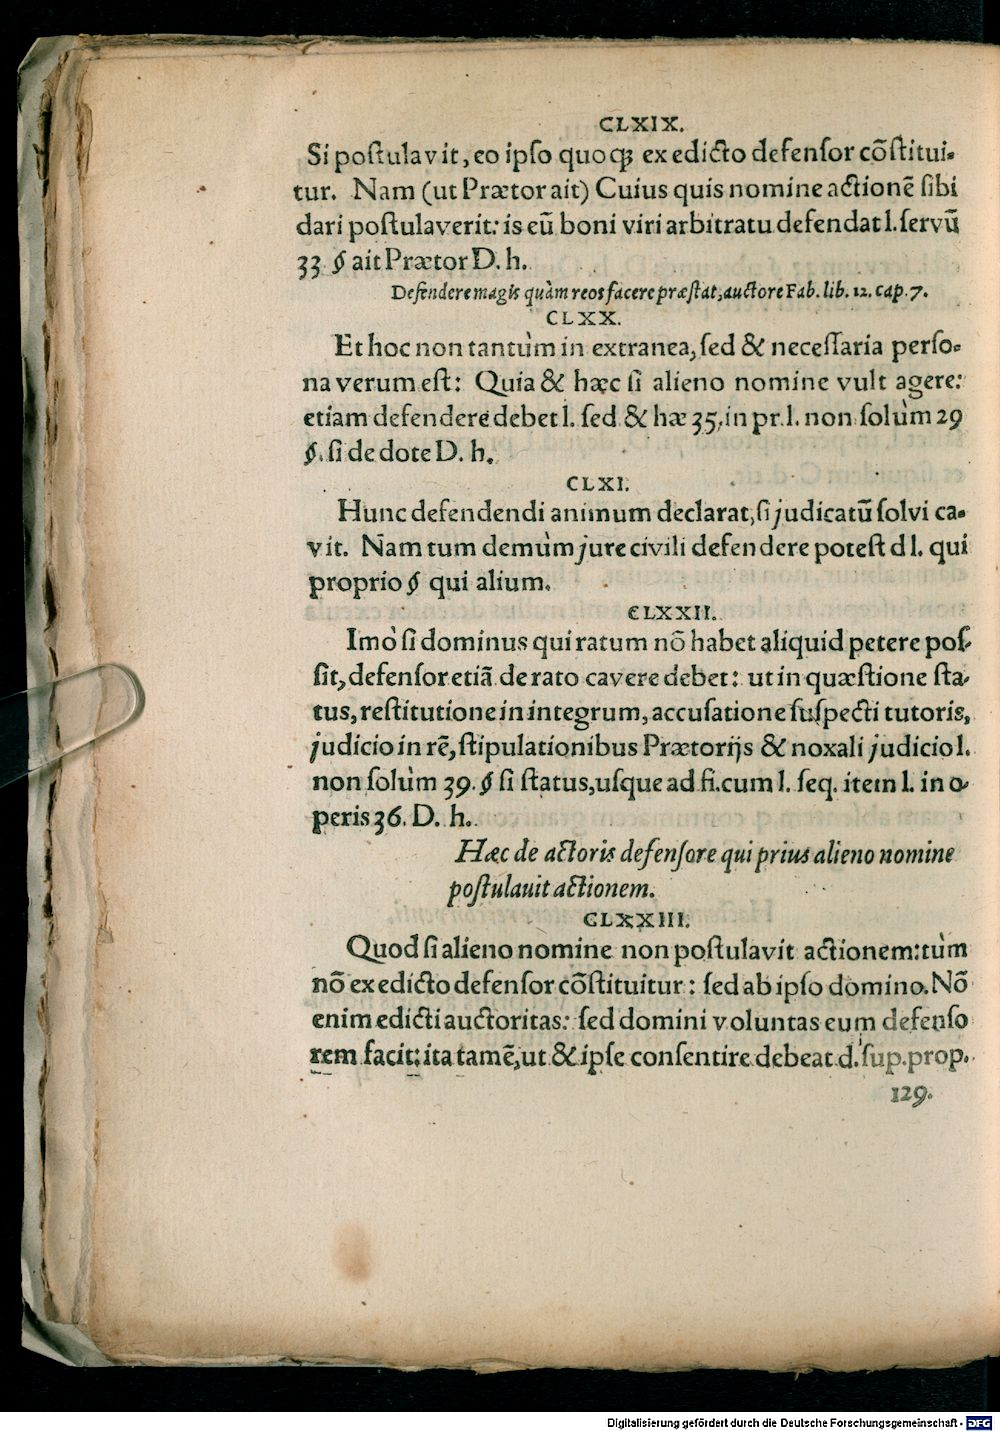 CLXIX.
Si postulavit, eo ipso quoqꝫ ex edicto defensor cõstitui-
tur. Nam (ut Prætor ait) Cuius quis nomine actionẽ sibi
dari postulaverit: is eũ boni viri arbitratu defendat l. servũ
33 § ait Prætor D. h.
Defendere magis quàm reos facere præstat, auctore Fab. lib. 12. cap. 7.
CLXX.
Et hoc non tantùm in extranea, sed & necessaria perso-
na verum est: Quia & hæc si alieno nomine vult agere:
etiam defendere debet l. sed & hæ 35. in pr. l. non solùm 29
§. si de dote D. h.
CLXI.
Hunc defendendi animum declarat, si judicatũ solvi ca-
vit. Nam tum demùm jure civili defendere potest d l. qui
proprio § qui alium.
CLXXII.
Imò si dominus qui ratum nõ habet aliquid petere pos-
sit, defensor etiã de rato cavere debet: ut in quæstione sta-
tus, restitutione in integrum, accusatione suspecti tutoris,
judicio in rẽ, stipulationibus Prætorijs & noxali judicio l.
non solùm 39. § si status, usque ad fi. cum l. seq. item l. in o-
peris 36. D. h.
Hæc de actoris defensore qui prius alieno nomine
postulauit actionem.
CLXXIII.
Quod si alieno nomine non postulavit actionem: tùm
nõ ex edicto defensor cõstituitur: sed ab ipso domino. Nõ
enim edicti auctoritas: sed domini voluntas eum defenso
rem facit: ita tamẽ, ut & ipse consentire debeat d. sup. prop.
129.
Digitalisierung gefördert durch die Deutsche Forschungsgemeinschaft - DFG